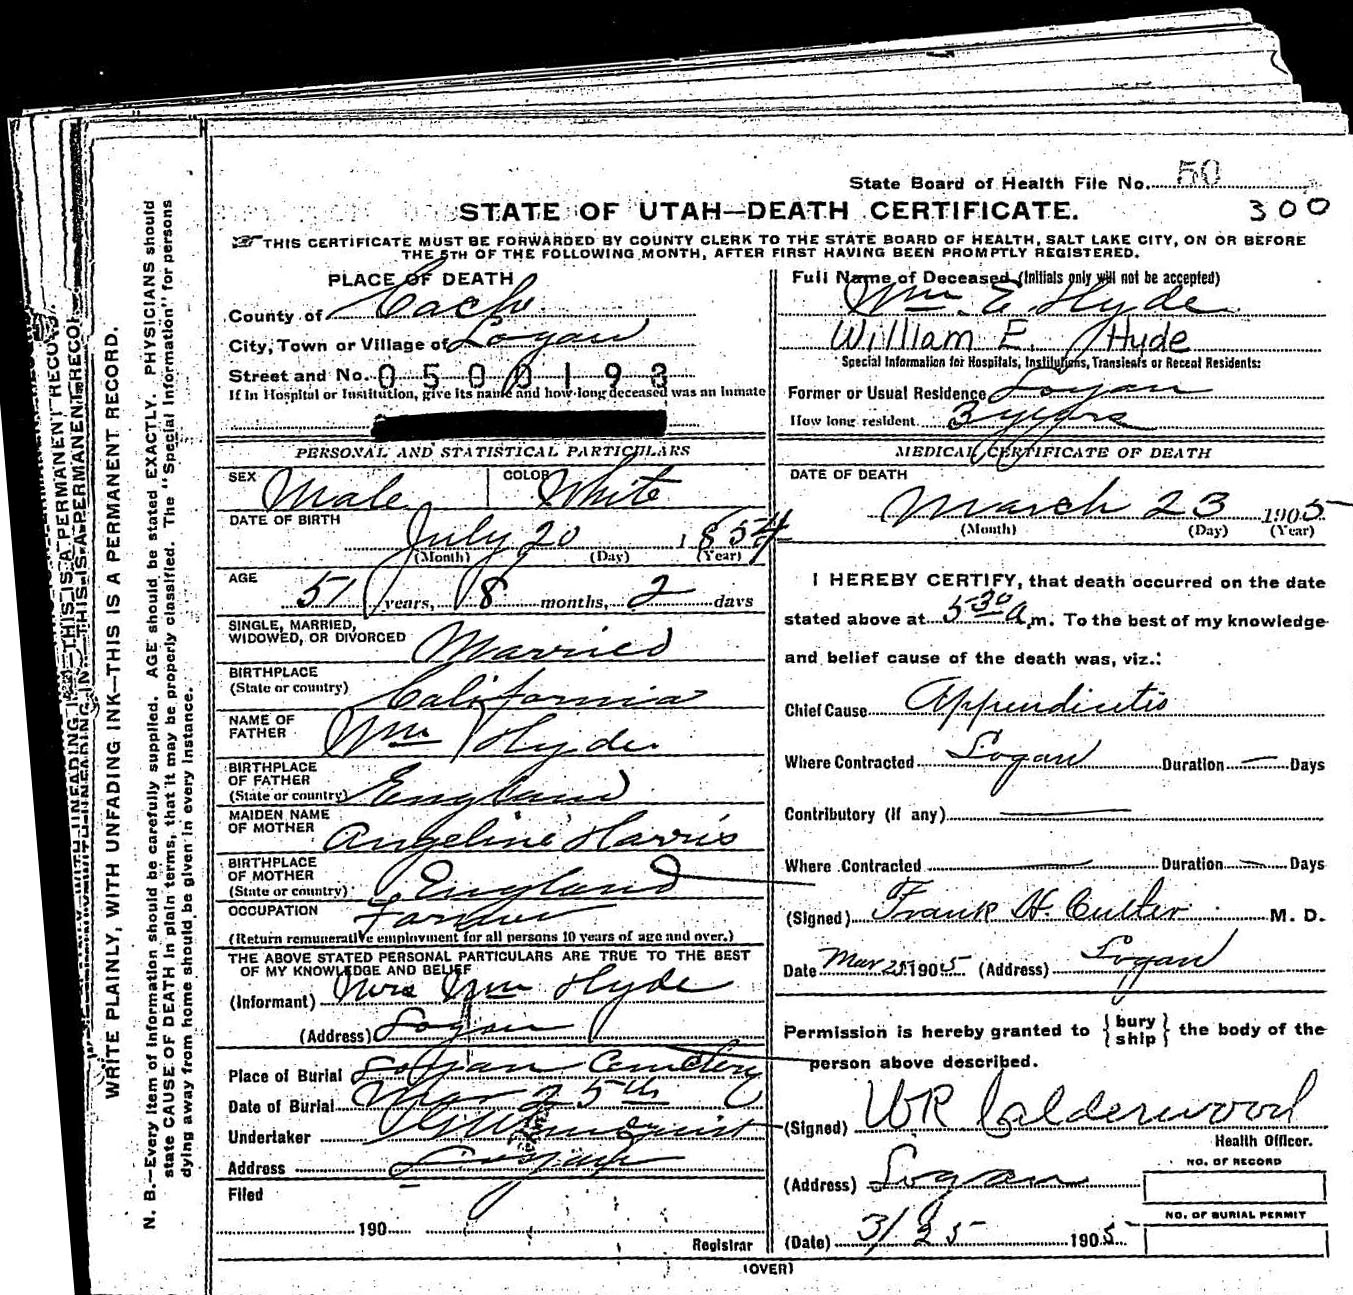 State Board of Health File No. 50
300
STATE OF UTAH—DEATH CERTIFICATE.
THIS CERTIFICATE MUST BE FORWARDED BY COUNTY CLERK TO THE STATE BOARD OF HEALTH, SALT LAKE CITY, ON OR BEFORE
THE 5TH OF THE FOLLOWING MONTH, AFTER FIRST HAVING BEEN PROMPTLY REGISTERED.
PLACE OF DEATH
County of Cache
City, Town or Village of Logan
Street and No. 0500193
If in Hospital or Institution, give its name and how long deceased was an inmate
Full Name of Deceased (Initials only will not be accepted)
Wm. E Hyde
William E. Hyde
Special Information for Hospitals, Institutions, Transients or Recent Residents:
Former or Usual Residence Logan
How long resident 3 years
PERSONAL AND STATISTICAL PARTICULARS
SEX Male COLOR White
DATE OF BIRTH
July 20 1854
(Month) (Day) (Year)
AGE
51 years, 8 months, 2 days
SINGLE, MARRIED,
WIDOWED, OR DIVORCED Married
BIRTHPLACE
(State or country) California
NAME OF
FATHER Wm Hyde
BIRTHPLACE
OF FATHER
(State or country) England
MAIDEN NAME
OF MOTHER Angeline Harris
BIRTHPLACE
OF MOTHER
(State or country) England
OCCUPATION Farmer
(Return remunerative employment for all persons 10 years of age and over.)
THE ABOVE STATED PERSONAL PARTICULARS ARE TRUE TO THE BEST
OF MY KNOWLEDGE AND BELIEF
(Informant) Mrs Wm Hyde
(Address) Logan
Place of Burial Logan Cemetery
Date of Burial Mar 25th
Undertaker
Address Logan
Filed
190
Registrar
MEDICAL CERTIFICATE OF DEATH
DATE OF DEATH
March 23 1905
(Month) (Day) (Year)
I HEREBY CERTIFY, that death occurred on the date
stated above at 5 30 a.m. To the best of my knowledge
and belief cause of the death was, viz.:
Chief Cause Appendicitis
Where Contracted Logan Duration — Days
Contributory (if any) —
Where Contracted — Duration — Days
(Signed) Frank H. Culter M. D.
Date Mar 25 1905 (Address) Logan
Permission is hereby granted to { bury
ship } the body of the
person above described.
(Signed) WR Calderwood
Health Officer.
(Address) Logan
NO. OF RECORD
NO. OF BURIAL PERMIT
(Date) 3/25 1905
(OVER)
WRITE PLAINLY, WITH UNFADING INK—THIS IS A PERMANENT RECORD.
N. B.—Every item of information should be carefully supplied. AGE should be stated EXACTLY. PHYSICIANS should
state CAUSE OF DEATH in plain terms, that it may be properly classified. The "Special Information" for persons
dying away from home should be given in every instance.